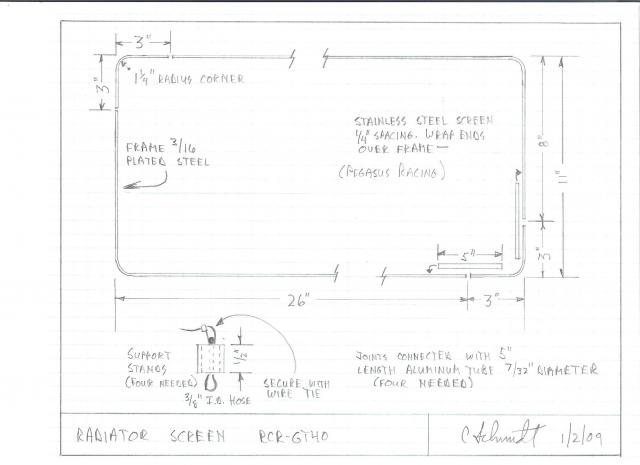 3"
3"
1 1/4" RADIUS CORNER
STAINLESS STEEL SCREEN
1/4" SPACING. WRAP ENDS
OVER FRAME —
(PEGASUS RACING)
FRAME 3/16
PLATED STEEL
8"
11"
5"
3"
26"
3"
SUPPORT
STANDS
(FOUR NEEDED)
1 1/2
SECURE WITH
WIRE TIE
3/8" I.D. HOSE
JOINTS CONNECTED WITH 5"
LENGTH ALUMINUM TUBE 7/32" DIAMETER
(FOUR NEEDED)
RADIATOR SCREEN RCR-GT40
C Schmidt 1/2/09